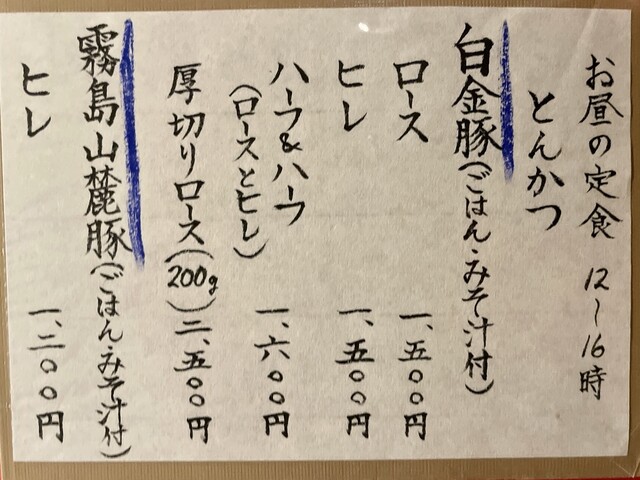 お昼の定食 12〜16時
とんかつ
白金豚(ごはん・みそ汁付)
ロース 一、五〇〇円
ヒレ 一、五〇〇円
ハーフ&ハーフ
(ロースとヒレ) 一、六〇〇円
厚切りロース(200g) 二、五〇〇円
霧島山麓豚(ごはん・みそ汁付)
ヒレ 一、二〇〇円